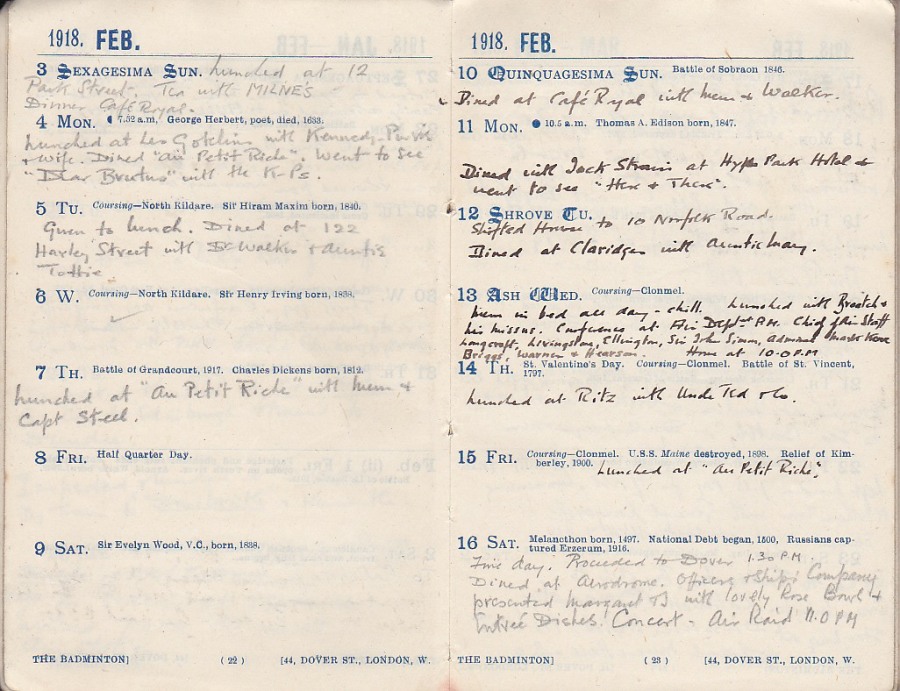 1918. FEB.
3 SEXAGESIMA SUN. Lunched at 12
Park Street. Tea with MILNES
Dinner Café Royal.
4 MON. 7.52 a.m. George Herbert, poet, died, 1633.
Lunched at Les Gobelins with Kennedy-Purvis
& wife. Dined "Au Petit Riche". Went to see
"Dear Brutus" with the K-Ps.
5 TU. Coursing—North Kildare. Sir Hiram Maxim born, 1840.
to lunch. Dined at 122
Harley Street with Dr Walker & Auntie
Tottie
6 W. Coursing—North Kildare. Sir Henry Irving born, 1838.
7 TH. Battle of Grandcourt, 1917. Charles Dickens born, 1812.
Lunched at "Au Petit Riche" with Mem &
Capt Steel.
8 FRI. Half Quarter Day.
9 SAT. Sir Evelyn Wood, V.C., born, 1838.
THE BADMINTON] ( 22 ) [44, DOVER ST., LONDON, W.
1918. FEB.
10 QUINQUAGESIMA SUN. Battle of Sobraon 1846.
Dined at Café Royal with Mem & Walker.
11 MON. 10.5 a.m. Thomas A. Edison born, 1847.
Dined with Jock Strain at Hyde Park Hotel &
went to see "Here & There".
12 SHROVE TU.
Shifted House to 10 Norfolk Road.
Dined at Claridges with Auntie May.
13 ASH WED. Coursing—Clonmel.
Mem in bed all day - chill. Lunched with &
his missus. Conference at Air Dept P.M. Chief of Air Staff
Longcroft, Livingston, Ellington, Sir John Simon, Admiral Mark Kerr
Briggs, Warner & Hearson. Home at 10.0 P.M
14 TH. St. Valentine's Day. Coursing—Clonmel. Battle of St. Vincent,
1797.
Lunched at Ritz with Uncle Ted & Co.
15 FRI. Coursing—Clonmel. U.S.S. Maine destroyed, 1898. Relief of Kim-
berley, 1900. Lunched at "Au Petit Riche".
16 SAT. Melancthon born, 1497. National Debt began, 1500, Russians cap-
tured Erzerum, 1916.
Fine day. Proceeded to Dover 1.30 P.M.
Dined at Aerodrome. Officers & Ship's Company
presented Margaret & I with lovely Rose Bowl &
Entrée Dishes. Concert - Air Raid 11.0 PM
THE BADMINTON] ( 23 ) [44, DOVER ST., LONDON, W.